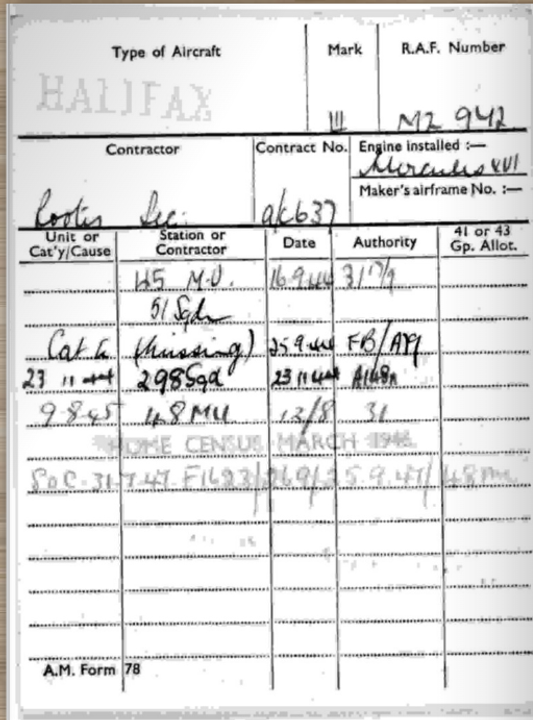 Type of Aircraft Mark R.A.F. Number
HALIFAX III MZ 942
Contractor Contract No. Engine installed :—
Mercules XVI
Maker's airframe No. :—
Rootes Sec. 637
Unit or Cat'y/Cause Station or Contractor Date Authority 41 or 43 Gp. Allot.
45 M.U. 16.9.44
51 Sqdn
Cat E (Missing) 25 9 44 FB/
23 11 44 298 Sqd 23 11 44
9-8-45 48 MU 13/8 31
HOME CENSUS MARCH 1946
SOC-31-7-47-F1623/ 25.9.47/48 MU
A.M. Form 78